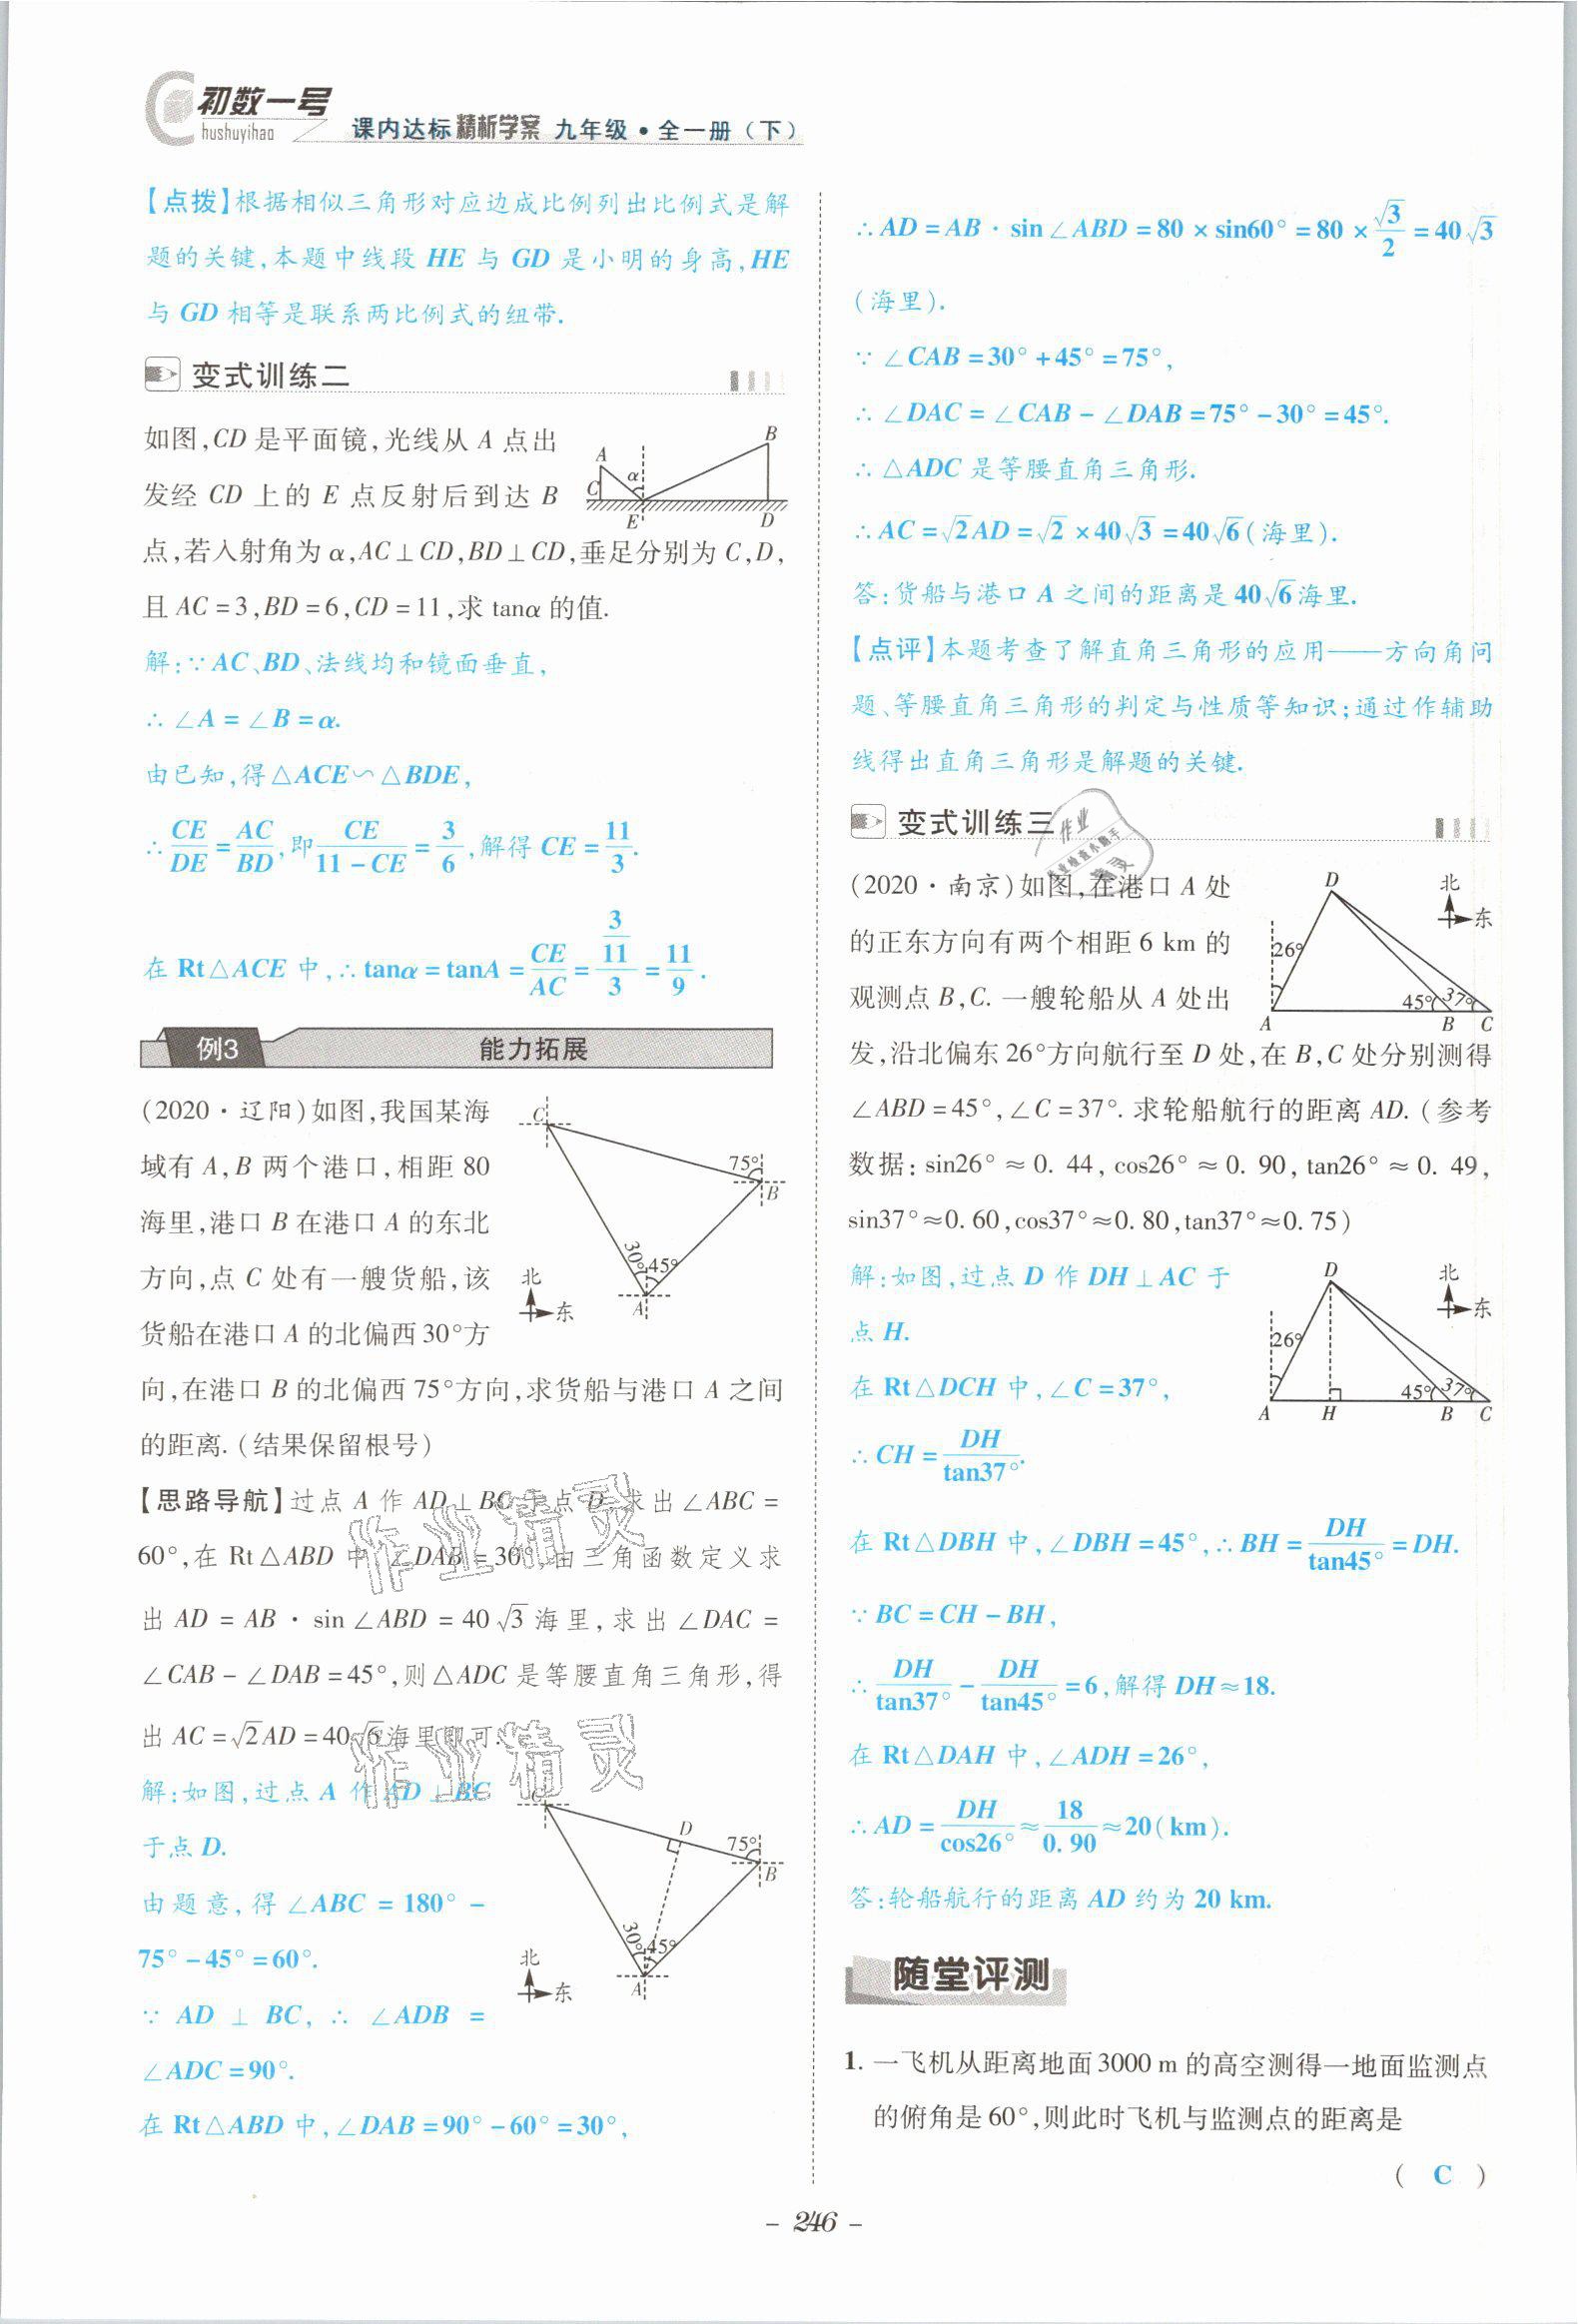 初数一号
hushuyihao
课内达标 精析学案 九年级·全一册(下)
【点拨】根据相似三角形对应边成比例列出比例式是解
题的关键,本题中线段 HE 与 GD 是小明的身高,HE
与 GD 相等是联系两比例式的纽带.
变式训练二
如图,CD 是平面镜,光线从 A 点出
发经 CD 上的 E 点反射后到达 B
点,若入射角为 α,AC⊥CD,BD⊥CD,垂足分别为 C,D,
且 AC=3,BD=6,CD=11,求 tanα 的值.
A B C D E α
解:∵AC、BD、法线均和镜面垂直,
∴∠A=∠B=α.
由已知,得△ACE∽△BDE,
∴CE/DE=AC/BD,即CE/(11-CE)=3/6,解得 CE=11/3.
在 Rt△ACE 中,∴tanα=tanA=CE/AC=3/11/3=11/9.
例3 能力拓展
(2020·辽阳)如图,我国某海
域有 A,B 两个港口,相距 80
海里,港口 B 在港口 A 的东北
方向,点 C 处有一艘货船,该
货船在港口 A 的北偏西30°方
向,在港口 B 的北偏西75°方向,求货船与港口 A 之间
的距离.(结果保留根号)
C 75° B 30° 45° A 北 东
【思路导航】过点 A 作 AD⊥BC于点 D,求出∠ABC=
60°,在 Rt△ABD 中,∠DAB=30°,由三角函数定义求
出 AD=AB·sin∠ABD=40√3海里,求出∠DAC=
∠CAB-∠DAB=45°,则△ADC 是等腰直角三角形,得
出 AC=√2AD=40√6海里即可.
作业精灵
作业精灵
解:如图,过点 A 作 AD⊥BC
于点 D.
由题意,得∠ABC=180°-
75°-45°=60°.
∵AD⊥BC,∴∠ADB=
∠ADC=90°.
在 Rt△ABD 中,∠DAB=90°-60°=30°,
C D 75° B 30° 45° A 北 东
∴AD=AB·sin∠ABD=80×sin60°=80×√3/2=40√3
(海里).
∵∠CAB=30°+45°=75°,
∴∠DAC=∠CAB-∠DAB=75°-30°=45°.
∴△ADC 是等腰直角三角形.
∴AC=√2AD=√2×40√3=40√6(海里).
答:货船与港口 A 之间的距离是40√6海里.
【点评】本题考查了解直角三角形的应用——方向角问
题、等腰直角三角形的判定与性质等知识;通过作辅助
线得出直角三角形是解题的关键.
变式训练三
作业
作业检查小助手
精灵
(2020·南京)如图,在港口 A 处
的正东方向有两个相距6 km 的
观测点 B,C.一艘轮船从 A 处出
发,沿北偏东26°方向航行至 D 处,在 B,C 处分别测得
∠ABD=45°,∠C=37°.求轮船航行的距离 AD.(参考
数据:sin26°≈0.44,cos26°≈0.90,tan26°≈0.49,
sin37°≈0.60,cos37°≈0.80,tan37°≈0.75)
D 北 东 26° 45° 37° A B C
解:如图,过点 D 作 DH⊥AC 于
点 H.
在 Rt△DCH 中,∠C=37°,
∴CH=DH/tan37°.
D 北 东 26° 45° 37° A H B C
在 Rt△DBH 中,∠DBH=45°,∴BH=DH/tan45°=DH.
∵BC=CH-BH,
∴DH/tan37°-DH/tan45°=6,解得 DH≈18.
在 Rt△DAH 中,∠ADH=26°,
∴AD=DH/cos26°≈18/0.90≈20(km).
答:轮船航行的距离 AD 约为 20 km.
随堂评测
1. 一飞机从距离地面3000 m 的高空测得一地面监测点
的俯角是60°,则此时飞机与监测点的距离是
( C )
- 246 -